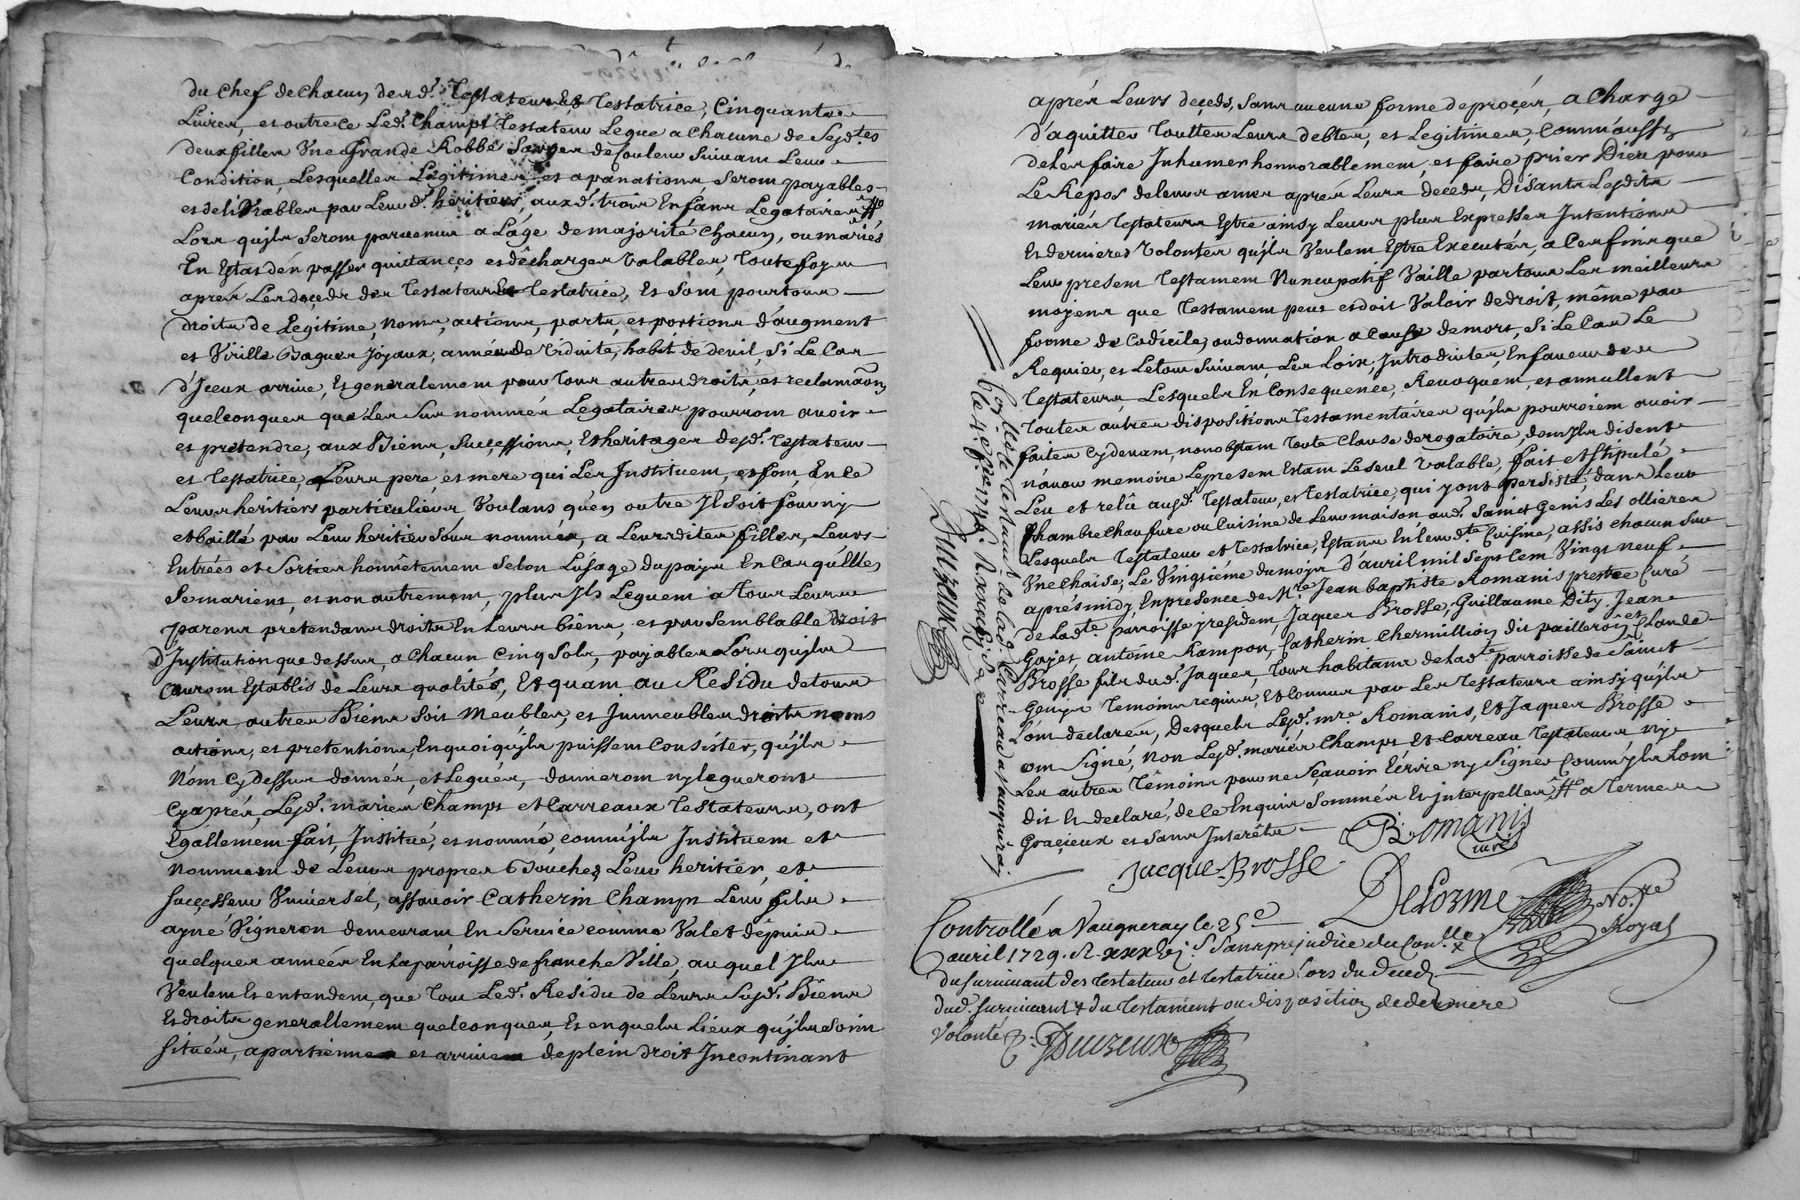 du Chef de chacun desd. Testateur Et Testatrice, Cinquante
Livres, et outre ce Led. Champt Testateur Legue a Chacune de Sesd.tes
deux filles Vne Grande Robbe Sarge de Couleur Suivant Leur
Condition, Lesquelles Légitimes et apanations Seront payables
et deliVrables par Leurd. héritiers, auxd. trois Enfans Legataires #
Lors qu'jls Seront parvenus a L'áge de majorité Chacun, ou mariés
En Estat d'en passer quittances et décharges Valables, Toutefoys
aprés Les décéds des Testateur Et Testatrice, Et Sont pour tous
droits de Legitime, noms, actions, parts, et portions d'augment
et Virille Bagues Joyaux, année de Viduité, habit de deüil, Si Le Cas
d'Jceux arrive, Et generalement pour Tous autres droits, et reclamaõns
quelconques que Les Sus nommés Légataires pourront avoir
et prétendre, aux Biens, Successions, Et héritages desd. Testateur
et Testatrice, Leurs pere, et mere qui Les Instituent, et font En Ce
Leurs héritiers particuliers Voulans qu'en outre Jl Soit fourny
et baillé par Leur heritier Sous nommé, a Leursdites filles, Leurs
Entrées et Sorties honnêtement Selon L'usage du pays En Cas qu'Elles
Se marient, et non autrement, plus Jls Leguent a Tous Leurs
parens prétendans droits En Leurs biens, et par Semblable Droit
d'Institution que dessus, a Chacun Cinq Sols, payables Lors qu'jls
auront Establis de Leurs qualités, Et quant au Résidu de tous
Leurs autres Biens Soit Meubles, et Immeubles droits noms
actions, et pretentions, En quoi qu'jls puissent Consister, qu'jls
N'ont Cy dessus donnés, et Legués, donneront ny legueront
Cy aprés, Lesd. mariés Champt et Carreaux Testateurs, ont
Egallement fait, Institué, et nommé, comm'jls Instituent et
Nomment de Leurs propres Bouches Leur heritier, et
Successeur Vniversel, assavoir Catherin Champt Leur fils
ayné Vigneron demeurant En Service comme Valet depuis
quelques années En La parroisse de francheVille, auquel Jls
Veulent et entendent, que Tout Led. Residu de Leurs Susd. Biens
Et droits generallement quelconques, Et en quels Lieux qu'jls Soint
Situés, apartienne et arrive de plein droit Incontinant
aprés Leurs décéds, sans aucune forme de procés, a Charge
d'aquitter Touttes Leurs debtes, et Legitimes, Comm'aussy
de Les faire Inhumer honnorablement, et faire prier Dieu pour
Le Repos de Leurs ames aprés Leurs deceds, Disants Lesdits
mariés Testateurs Estre ainsy Leurs plus Expresses Intentions
Et derniéres Volontés qu'jls Veulent Estre Executés, a Ces fins que
Leur present Testament Nuncupatif Vaille par tous Les meilleurs
moyens que Testament peut et doit Valoir de droit, même par
forme de Codicile, ou donnation a Cause de mort, Si Le Cas Le
Requier, et Letout Suivant Les Loix, Introduites, En faveur des
Testateurs Lesquels En Consequence, Revoquent, et annullent
Toutes autres dispositions Testamentaires qu'jls pourroient avoir
faites Cy devant, nonobstant Toute Clause derogatoire, dont Jls disent
n'avoir memoire Le present Estant Le Seul Valable, fait et Stipulé
Leu et relû ausd. Testateur, et Testatrice, qui y ont persisté, dans Leur
Chambre Chaufure ou Cuisine de Leur maison aud. Sainct Genis Les ollieres
Lesquels Testateur et Testatrice, Estans En Leurd.te Cuisine, assis chacun Sur
Vne chaise, Le Vingtiéme du moys d'avril mil Sept Cent Vingt neuf
aprés midy, En presence de M.re Jean baptiste Romanis prestre Curé
de Lad.te parroisse president, Jacques Brosse, Guillaume Dity, Jean
Gayet antoine Rampon, Catherin Chermillion dit pailleron, et Claude
Brosse fils dud. Jaques, Tous habitans de Lad.te parroisse de Sainct
Genys Temoins requis, Et Connus par Les Testateurs ainsy qu'jls
L'ont declarés, Desquels Lesd. m.re Romanis, Et Jaques Brosse
ont Signé, Non Lesd. mariés Champt Et Carreau Testateurs Ny
Les autres Témoins pour ne Sçavoir Ecrire ny Signer Comm'jls L'ont
dit Et declaré, de Ce Enquis Sommés Et Interpellés # a Termes
Graçieux et Sans Interêts
Romanis
curé
Jacque Brosse
Delorme No.re
Royal
Controllé a Vaugneray le 25e
avril 1729. R. xxx Sans prejudice du Con.lle
du Survivant des Testateur et Testatrice Lors du Deceds
dud. survivant & du Testament ou disposition de derniere
Volonté
Duzeux
Duzeux